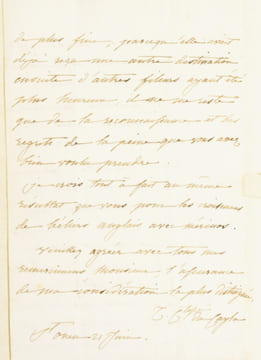 de plus fine, parcequ'elle avait
déjà reçu une autre destination
ensuite d'autres fileurs ayant été
plus heureux, il ne me reste
que de la reconnaissance et des
regrets de la peine que vous avez
bien voulu prendre.
Je crois tout à fait au même
résultat que vous pour les croisemens
de béliers anglais avec mérinos.
Veuillez agréer avec tous mes
remercimens monsieur l'assurance
de ma considération la plus distinguée.
St Ouen 21 Juin.